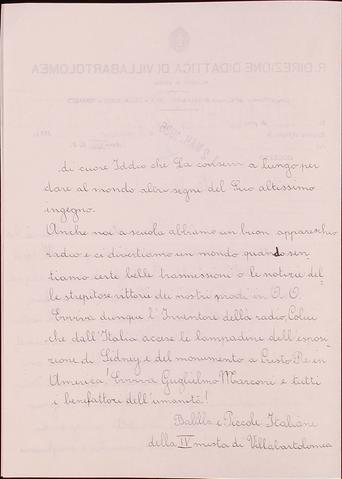 R. DIREZIONE DIDATTICA DI VILLABARTOLOMEA
di cuore Iddio che La conservi a lungo per
dare al mondo altri segni del Suo altissimo
ingegno.
Anche noi a scuola abbiamo un buon apparecchio
radio e ci divertiamo un mondo quando sen-
tiamo certe belle trasmissioni o le notizie del-
le strepitose vittorie dei nostri prodi in A. O.
Evviva dunque l'Inventore della radio, Colui
che dall'Italia accese le lampadine dell'esposi-
zione di Sidney e del monumento a Cristo Re in
America! Evviva Guglielmo Marconi e tutti
i benefattori dell'umanità!
Balilla e Piccole Italiane
della IV mista di Villabartolomea